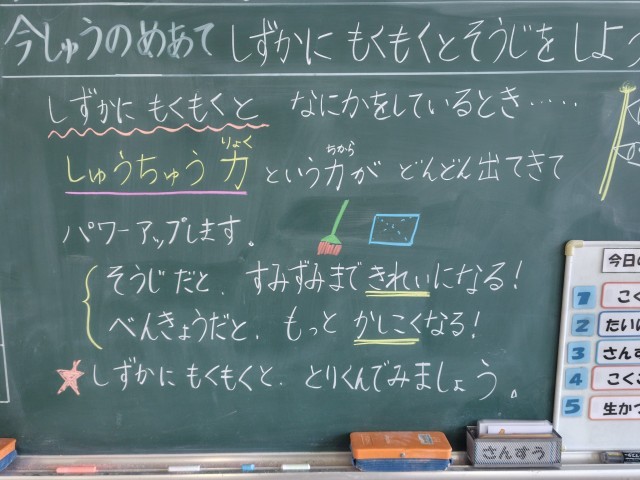 今しゅうのめあて しずかに もくもくとそうじを しよう
しずかに もくもくと なにかをしているとき……
しゅうちゅう力 という力が どんどん出てきて
りょく ちから
パワーアップします。
そうじだと、すみずみまできれいになる!
べんきょうだと、もっと かしこくなる!
しずかに もくもくと、とりくんでみましょう。
今日の
1 こく
2 たいい
3 さんす
4 こくご
5 生かつ
さんすう